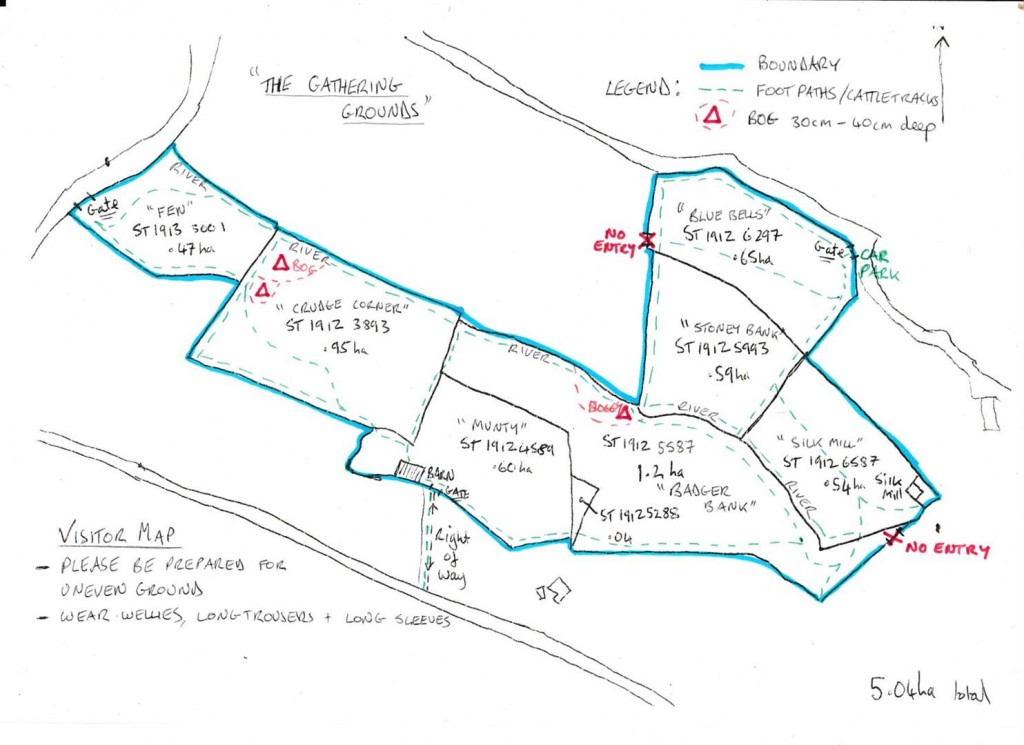 "THE GATHERING
GROUNDS"
N
LEGEND:
BOUNDARY
FOOT PATHS/CATTLETRACKS
BOG 30cm - 40cm deep
RIVER
Gate
"FEN"
ST 1913 3001
.47ha
RIVER
BOG
"CRUDGE CORNER"
ST 1912 3893
.95ha
NO
ENTRY
"BLUE BELLS"
ST 1912 6297
.65ha
Gate
CAR
PARK
"STONEY BANK"
ST 1912 5993
.59ha
RIVER
BOGGY
RIVER
"MUNTY"
ST 1912 4589
.60ha
ST 1912 5587
1.2 ha
"BADGER
BANK"
"SILK MILL"
ST 1912 6587
.54ha
SILK
MILL
RIVER
BARN
GATE
ST 1912 5288
.04
NO ENTRY
Right
of
Way
VISITOR MAP
- PLEASE BE PREPARED FOR
UNEVEN GROUND
- WEAR WELLIES, LONG TROUSERS + LONG SLEEVES
5.04ha total